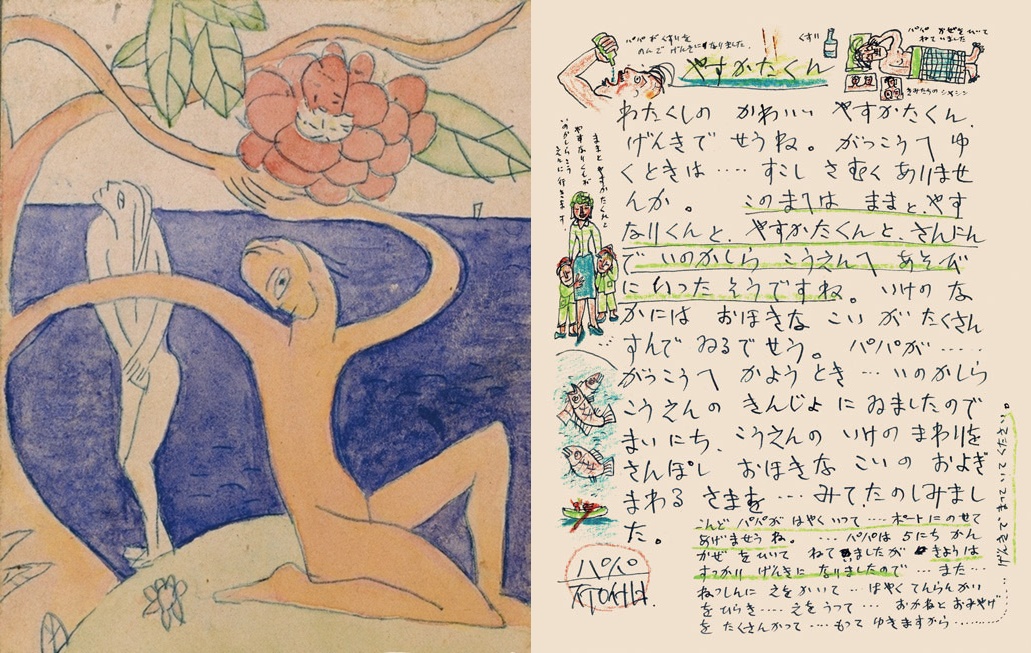 パパがくすりを
のんで げんきになりました。
やすかたくん
くすり
パパ かぜをひいて
ねていました
きみたちのシャシン
わたくしの かわいい やすかたくん。
げんきで せうね。 がっこうへ ゆ
くときは‥‥ すこし さむく ありませ
んか。 このまへは ままと、やす
なりくんと、やすかたくんと、さんにん
で いのかしら こうえんへ あそび
に いった そうですね。 いけの な
かには おほきな こい が たくさん
すんで ゐるで せう。 パパが‥‥‥
がっこうへ かよう とき‥‥ いのかしら
こうえんの きんじょ に ゐましたので
まいにち、こうえんの いけの まわりを
さんぽし おほきな こいの およぎ
まわる さまを ‥‥ みて、たのしみまし
た。
こんど パパが はやく いって‥‥ ボートに のせて
あげませう ね。 ‥‥ パパは 5にち かん
かぜ を ひいて ねて ゐましたが きょうは
すっかり げんきに なりましたので‥‥ また‥‥
ねっしんに えを かいて‥‥ はやく てんらんかい
を ひらき‥‥ えを うって‥‥ おかねと おみやげ
を たくさん かって‥‥ もって ゆきますから‥‥‥‥
げんきで まって いて ください。
ままと やすかたくんと
やすなりくんが
いのかしらこう
えんに 行きます
パパ